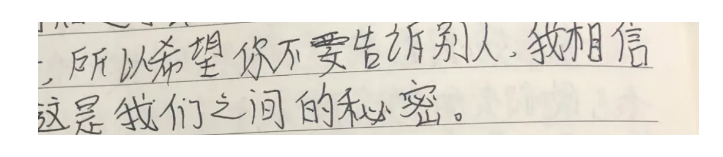 ，所以希望你不要告诉别人，我相信
这是我们之间的秘密。